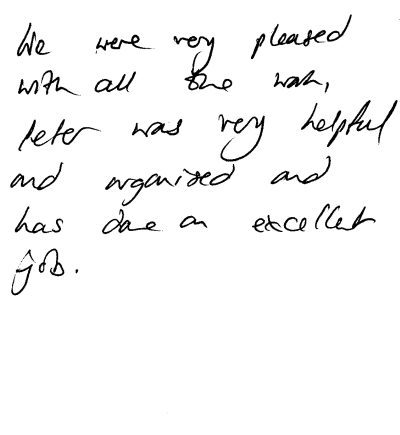 We were very pleased
with all the work,
Peter was very helpful
and organised and
has done an excellent
job.